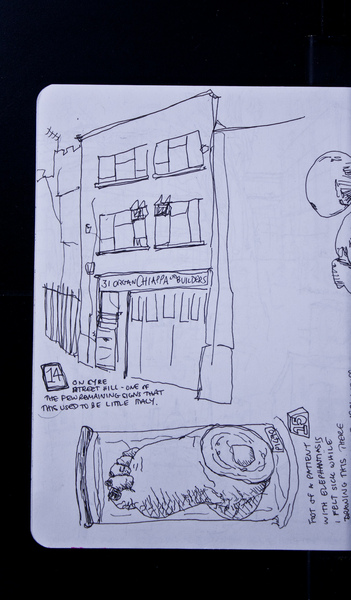 31 ORGAN CHIAPPA LTD BUILDERS
14
ON EYRE
STREET HILL - ONE OF
THE FEW REMAINING SIGNS THAT
THIS USED TO BE LITTLE ITALY.
15
FOOT OF A PATIENT
WITH ELEPHANTIASIS
I FELT SICK WHILE
DRAWING THIS THERE